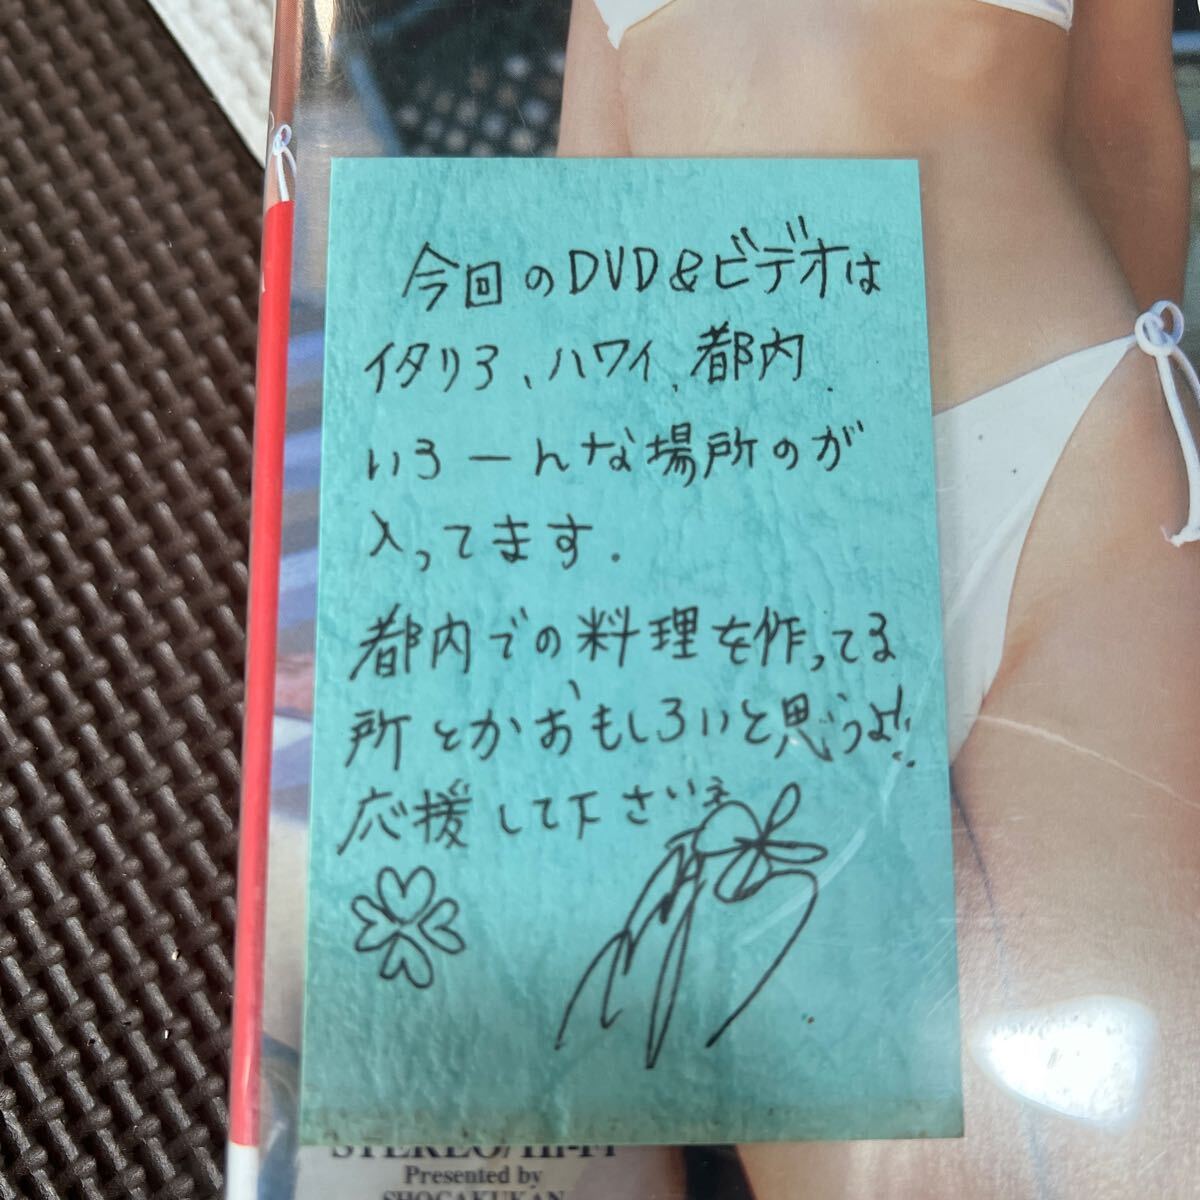 今回のDVD&ビデオは
イタリア、ハワイ、都内、
いろーんな場所のが
入ってます.
都内での料理を作ってる
所とかおもしろいと思うよ!!
応援して下さいネ
STEREO/Hi-Fi
Presented by
SHOGAKUKAN